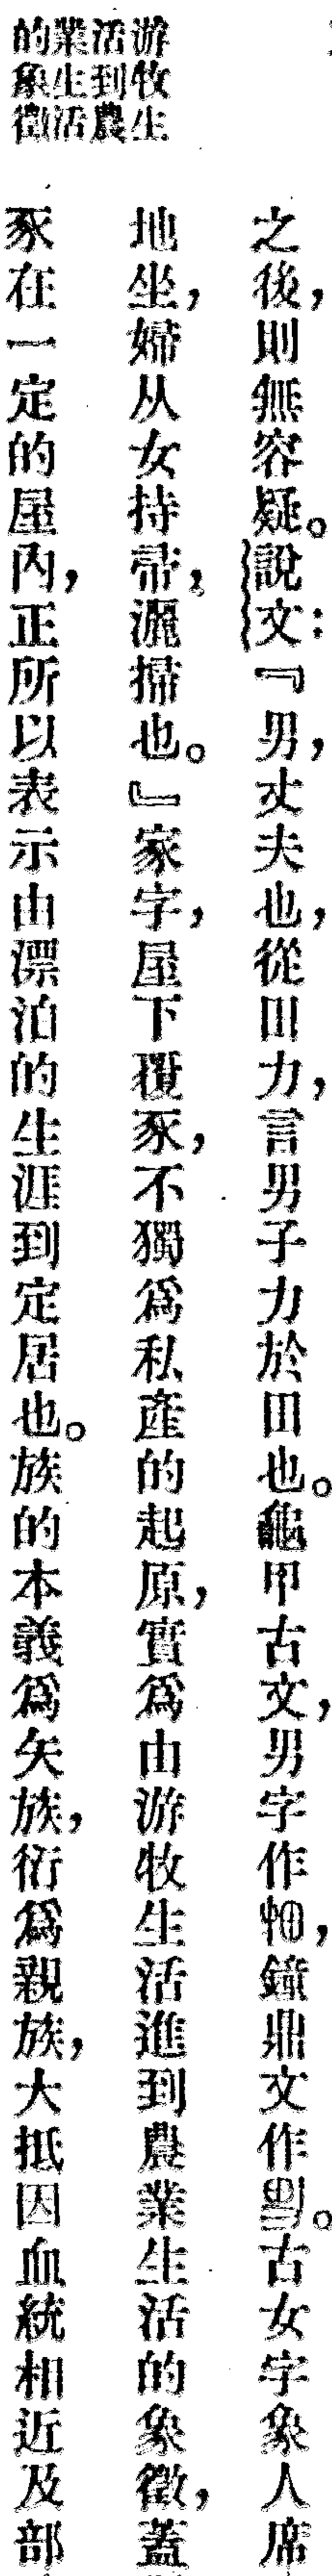 游牧生
活到農
業生活
的象徵
之後，則無容疑。說文：『男，丈夫也，從田力，言男子力於田也。龜甲古文，男字作，鐘鼎文作。古女字象人席
地坐，婦从女持帚，灑掃也。』家字，屋下覆豕，不獨爲私產的起原，實爲由游牧生活進到農業生活的象徵，蓋
豕在一定的屋內，正所以表示由漂泊的生涯到定居也。族的本義爲矢族，衍爲親族，大抵因血統相近及部